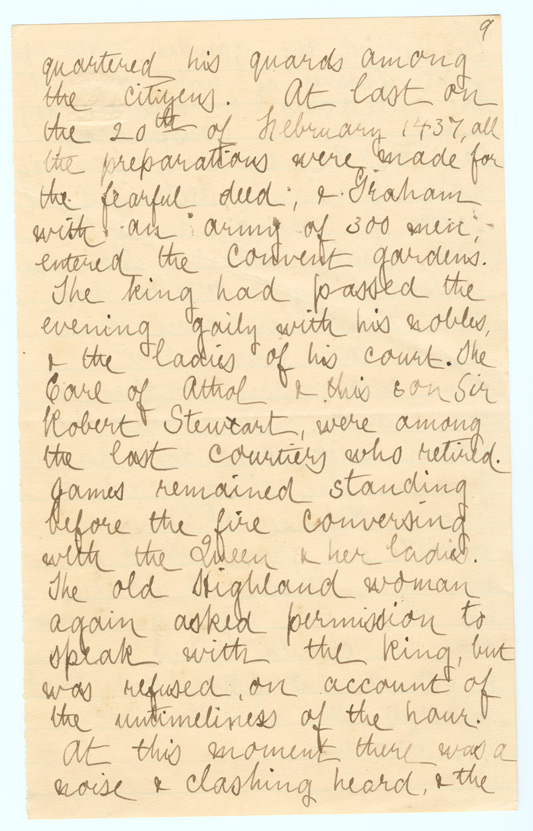 9
quartered his guards among
the citizens. At last on
the 20th of February 1437, all
the preparations were made for
the fearful deed; & Graham
with an army of 300 men,
entered the convent gardens.
The king had passed the
evening gaily with his nobles,
& the ladies of his court. The
Earl of Athol & this son Sir
Robert Stewart, were among
the last courtiers who retired.
James remained standing
before the fire conversing
with the Queen & her ladies.
The old Highland woman
again asked permission to
speak with the king, but
was refused, on account of
the untimeliness of the hour.
At this moment there was a
noise & clashing heard, & the